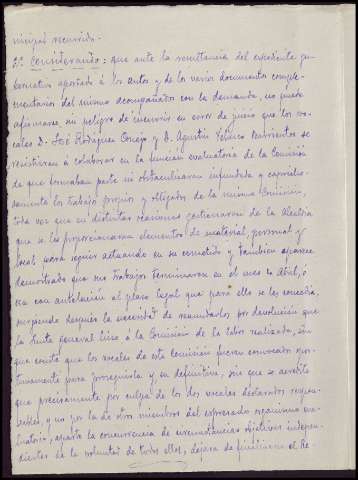 nicipal recurrida.
2º Considerando: que ante la resultancia del expediente gu-
bernativo aportado á los autos y de los varios documentos comple-
mentarios del mismo acompañados con la demanda, no puede
afirmarse sin peligro de incurrir en error de juicio que los vo-
cales D. José Rodríguez Conejo y D. Agustín Velasco recurrentes se
resistieran á colaborar en la función evaluatoria de la Comisión
de que formaban parte ni obstaculizaran infundada y capricho-
samente los trabajos propios y obligados de la misma Comisión,
toda vez que en distintas ocasiones gestionaron de la Alcaldía
que se les proporcionaran elementos de material, personal y
local para seguir actuando en su cometido y tambien aparece
demostrado que sus trabajos terminaron en el mes de Abril, ó
sea con antelación al plazo legal que para ello se les concedía,
surgiendo después la necesidad de reanudarlos por devolución que
la Junta general hizo á la Comisión de la labor realizada, sin
que conste que los vocales de esta Comisión fueran convocados opor-
tunamente para proseguirla y en definitiva, sin que se acredite
que precisamente por culpa de los dos vocales declarados respon-
sables, y no por la de otros miembros del expresado organismo eva-
luatorio, aparte la concurrencia de circunstancias objetivas indepen-
dientes de la voluntad de todos ellos, dejara de finalizarse el Re-